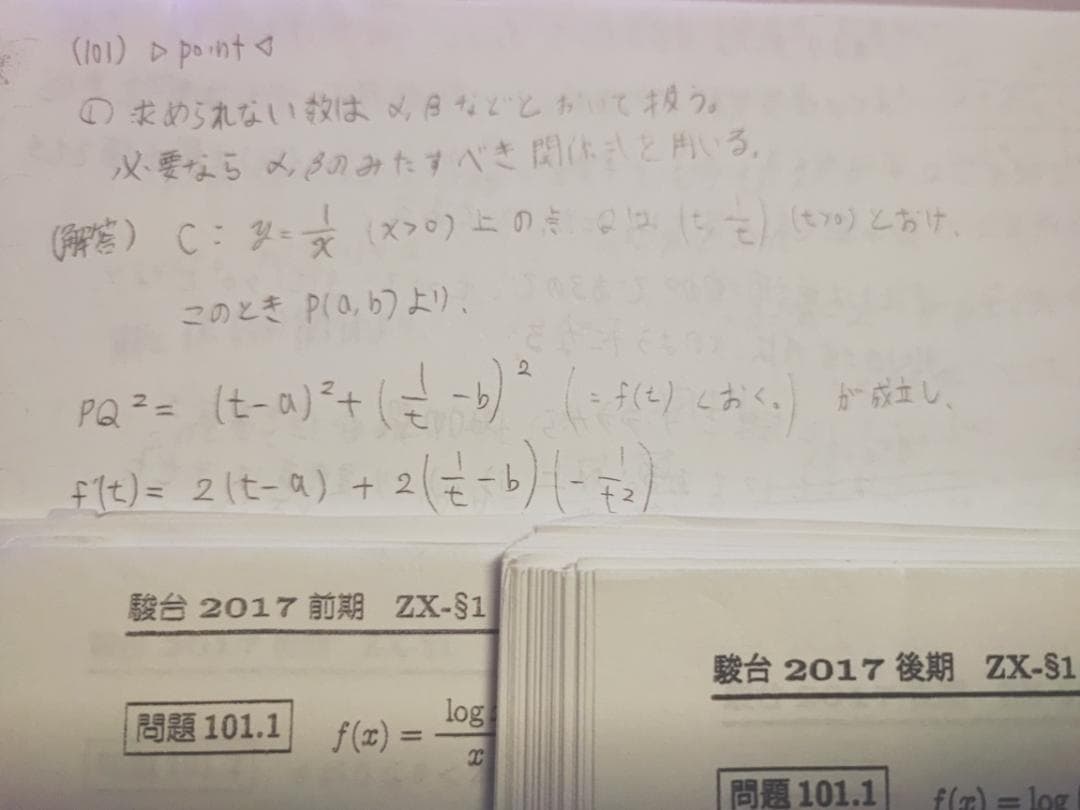 (101) ▷ point ◁
① 求められない数は α, β などとおいて扱う。
必要なら α, β のみたすべき関係式を用いる.
(解答) C: y = 1/x (x>0) 上の点 Q は (t, 1/t) (t>0) とおけ、
このとき P(a, b) より、
PQ² = (t-a)² + (1/t - b)² (= f(t) とおく。) が成立し、
f'(t) = 2(t-a) + 2(1/t - b)(- 1/t²)
駿台 2017 前期 ZX-§1
問題 101.1 f(x) = log / x
駿台 2017 後期 ZX-§1
問題 101.1 f(x) = log